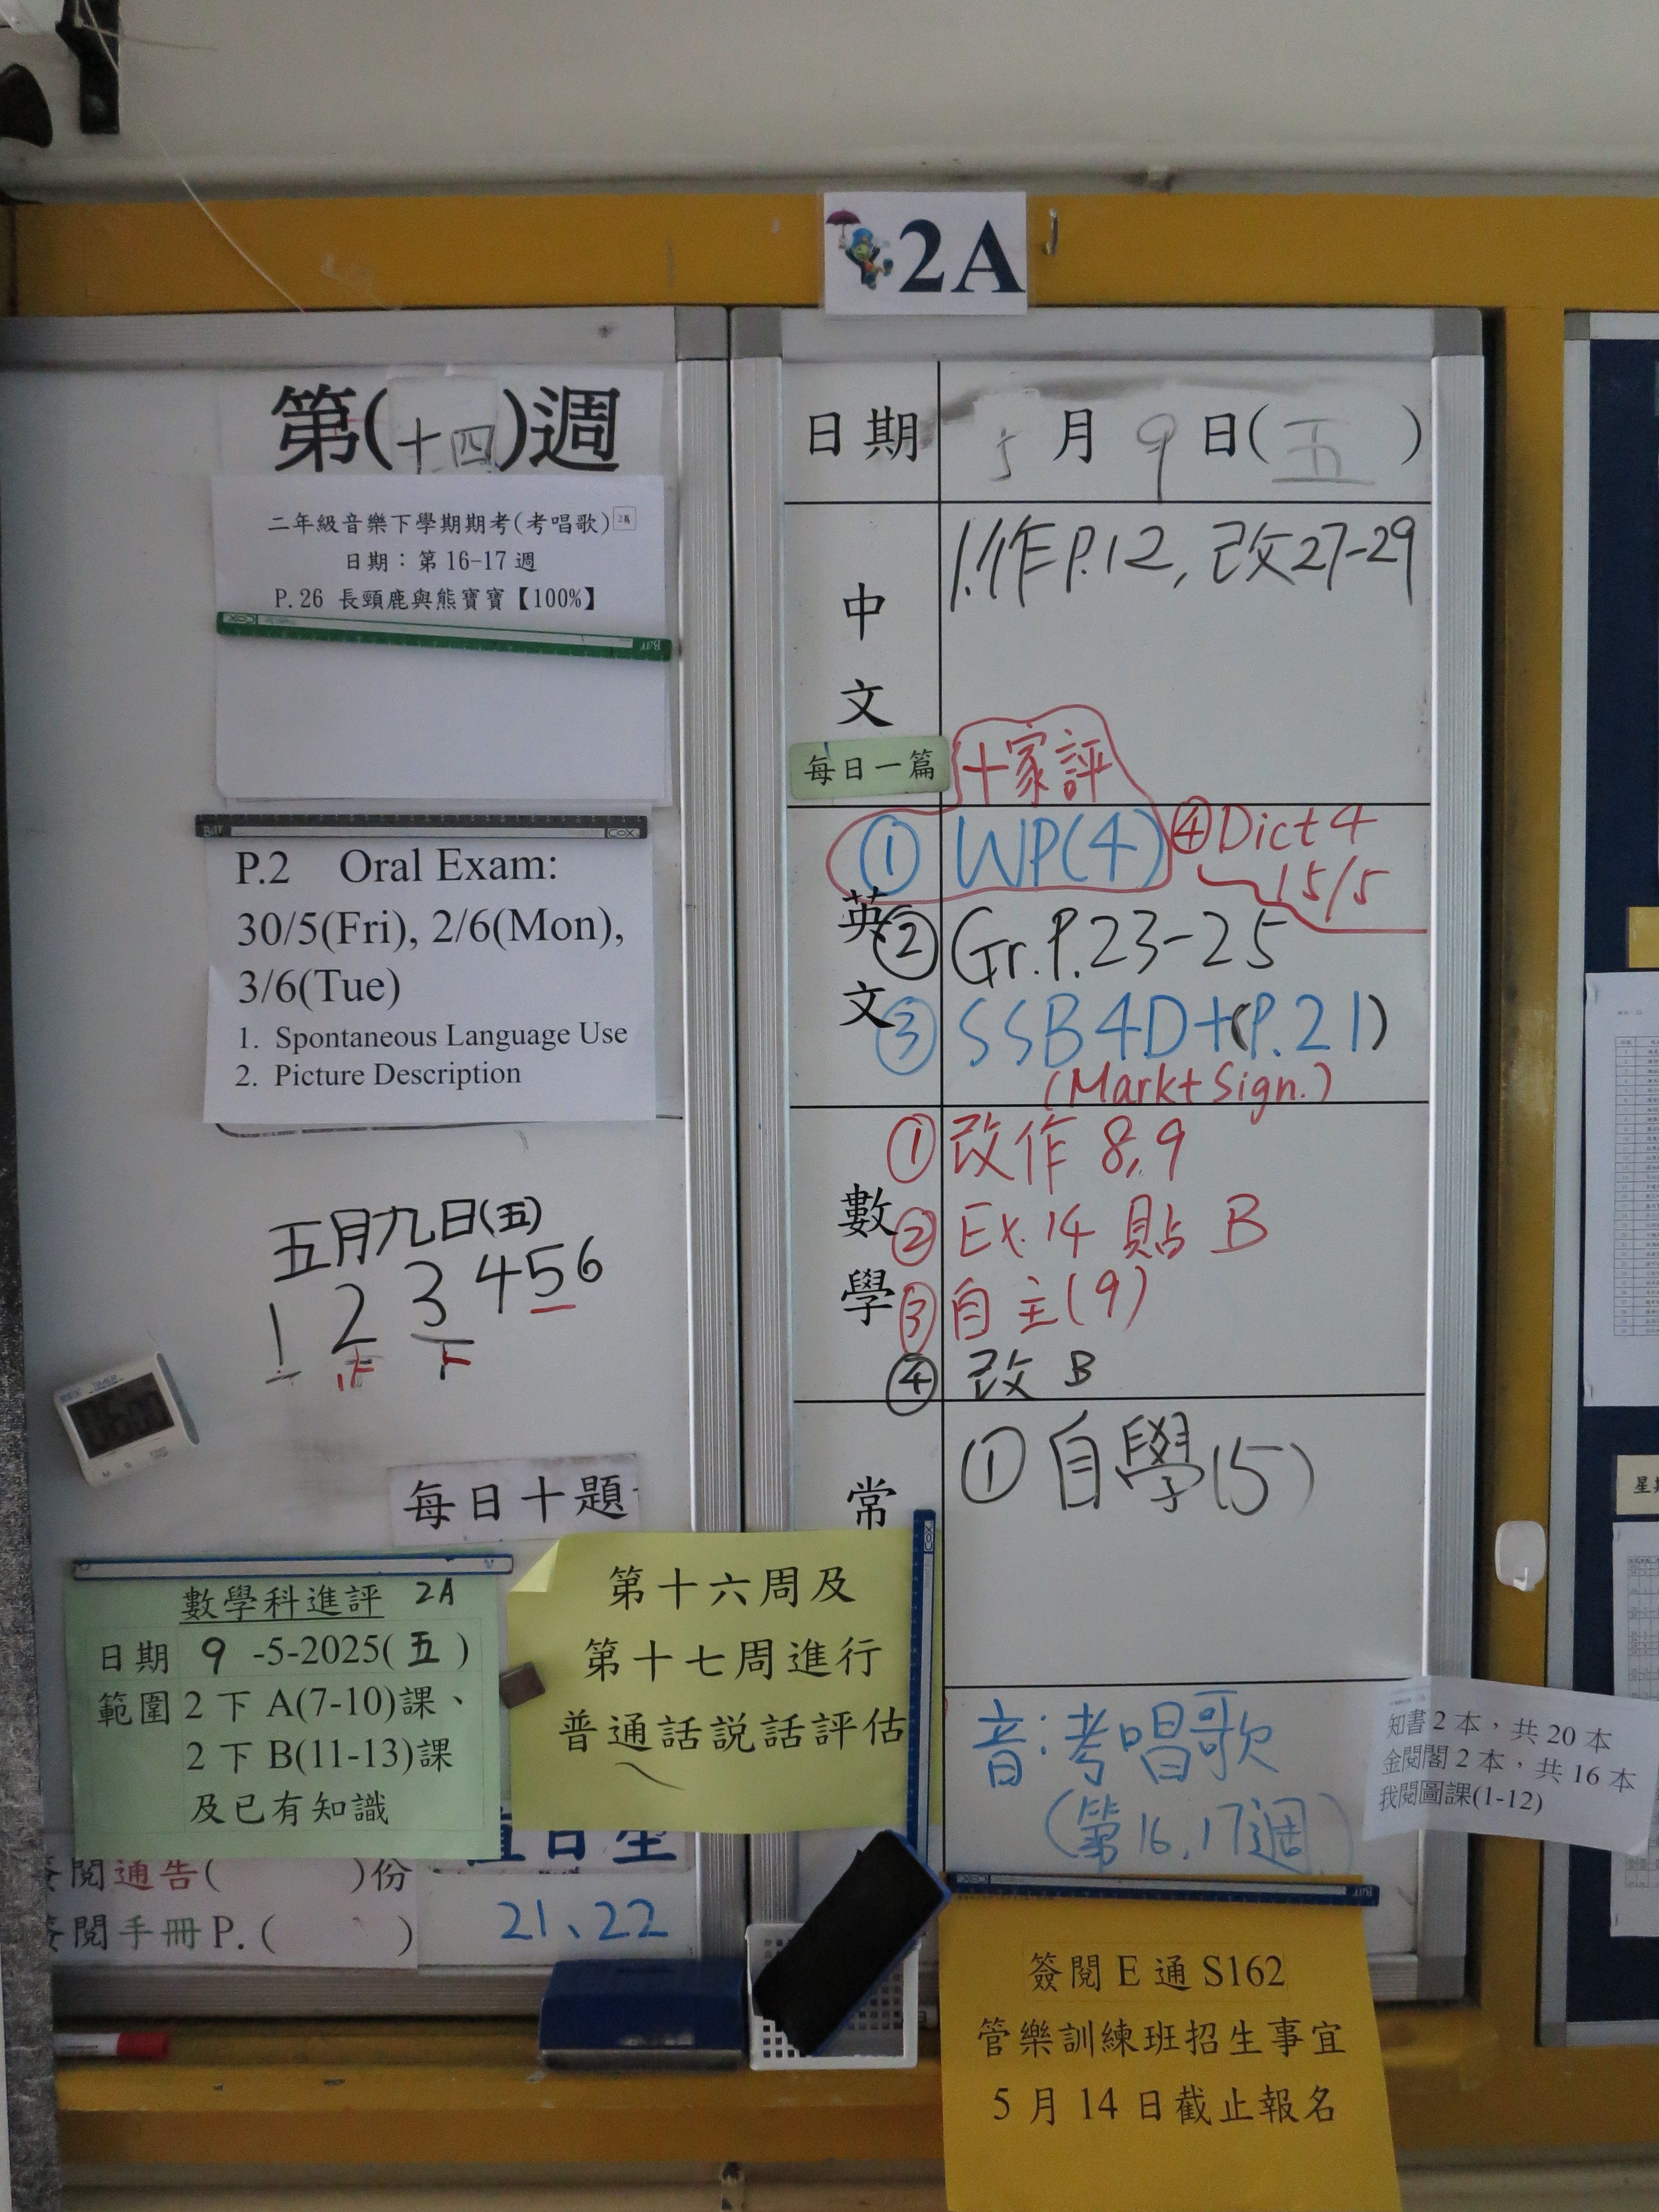 2A
第(十四)週
二年級音樂下學期期考(考唱歌) 2A
日期：第 16-17 週
P.26 長頸鹿與熊寶寶【100%】
P.2 Oral Exam:
30/5(Fri), 2/6(Mon),
3/6(Tue)
1. Spontaneous Language Use
2. Picture Description
五月九日(五)
1 2 3 4 5 6
每日十題
數學科進評 2A
日期 9 -5-2025(五)
範圍 2 下 A(7-10)課、
2 下 B(11-13)課
及已有知識
第十六周及
第十七周進行
普通話說話評估
簽閱通告( )份
簽閱手冊P.( )
值日生
21、22
日期 5月9日(五)
中文
1.作P.12, 改27-29
每日一篇
十家評
英文
① WP(4)
④Dict 4
15/5
② Gr.P.23-25
③ SSB4D+(P.21)
(Mark+Sign.)
數學
① 改作 8,9
② Ex.14 貼 B
③ 自主(9)
④ 改 B
常
① 自學(5)
音:考唱歌
(第16,17週)
知書 2 本，共 20 本
金閱閣 2 本，共 16 本
我閱圖課(1-12)
簽閱 E 通 S162
管樂訓練班招生事宜
5 月 14 日截止報名